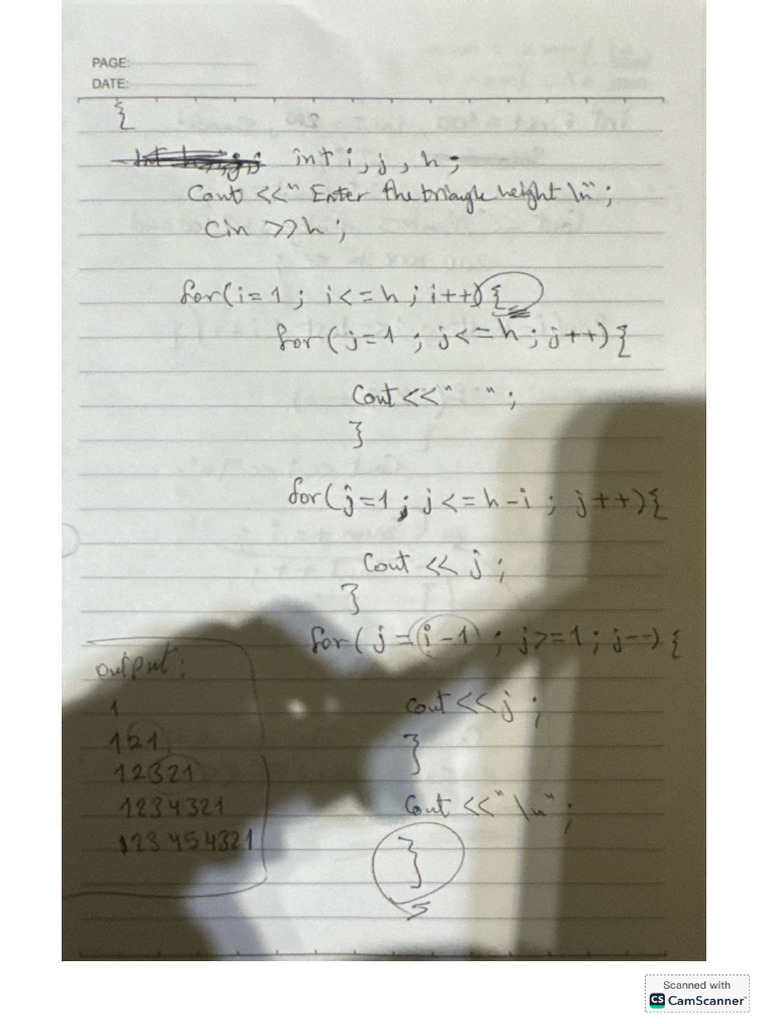 PAGE:
DATE:
{
int i, j, h;
Cout <<" Enter the triangle height \n";
Cin >>h;
for(i=1; i<=h; i++){
for(j=1; j<=h; j++){
Cout<<" ";
}
for(j=1; j<=h-i; j++){
Cout << j;
}
for(j=(i-1); j>=1; j--){
output:
cout <<j;
1
121
}
12321
1234321
Cout <<"\n";
123454321
}
Scanned with
CS CamScanner